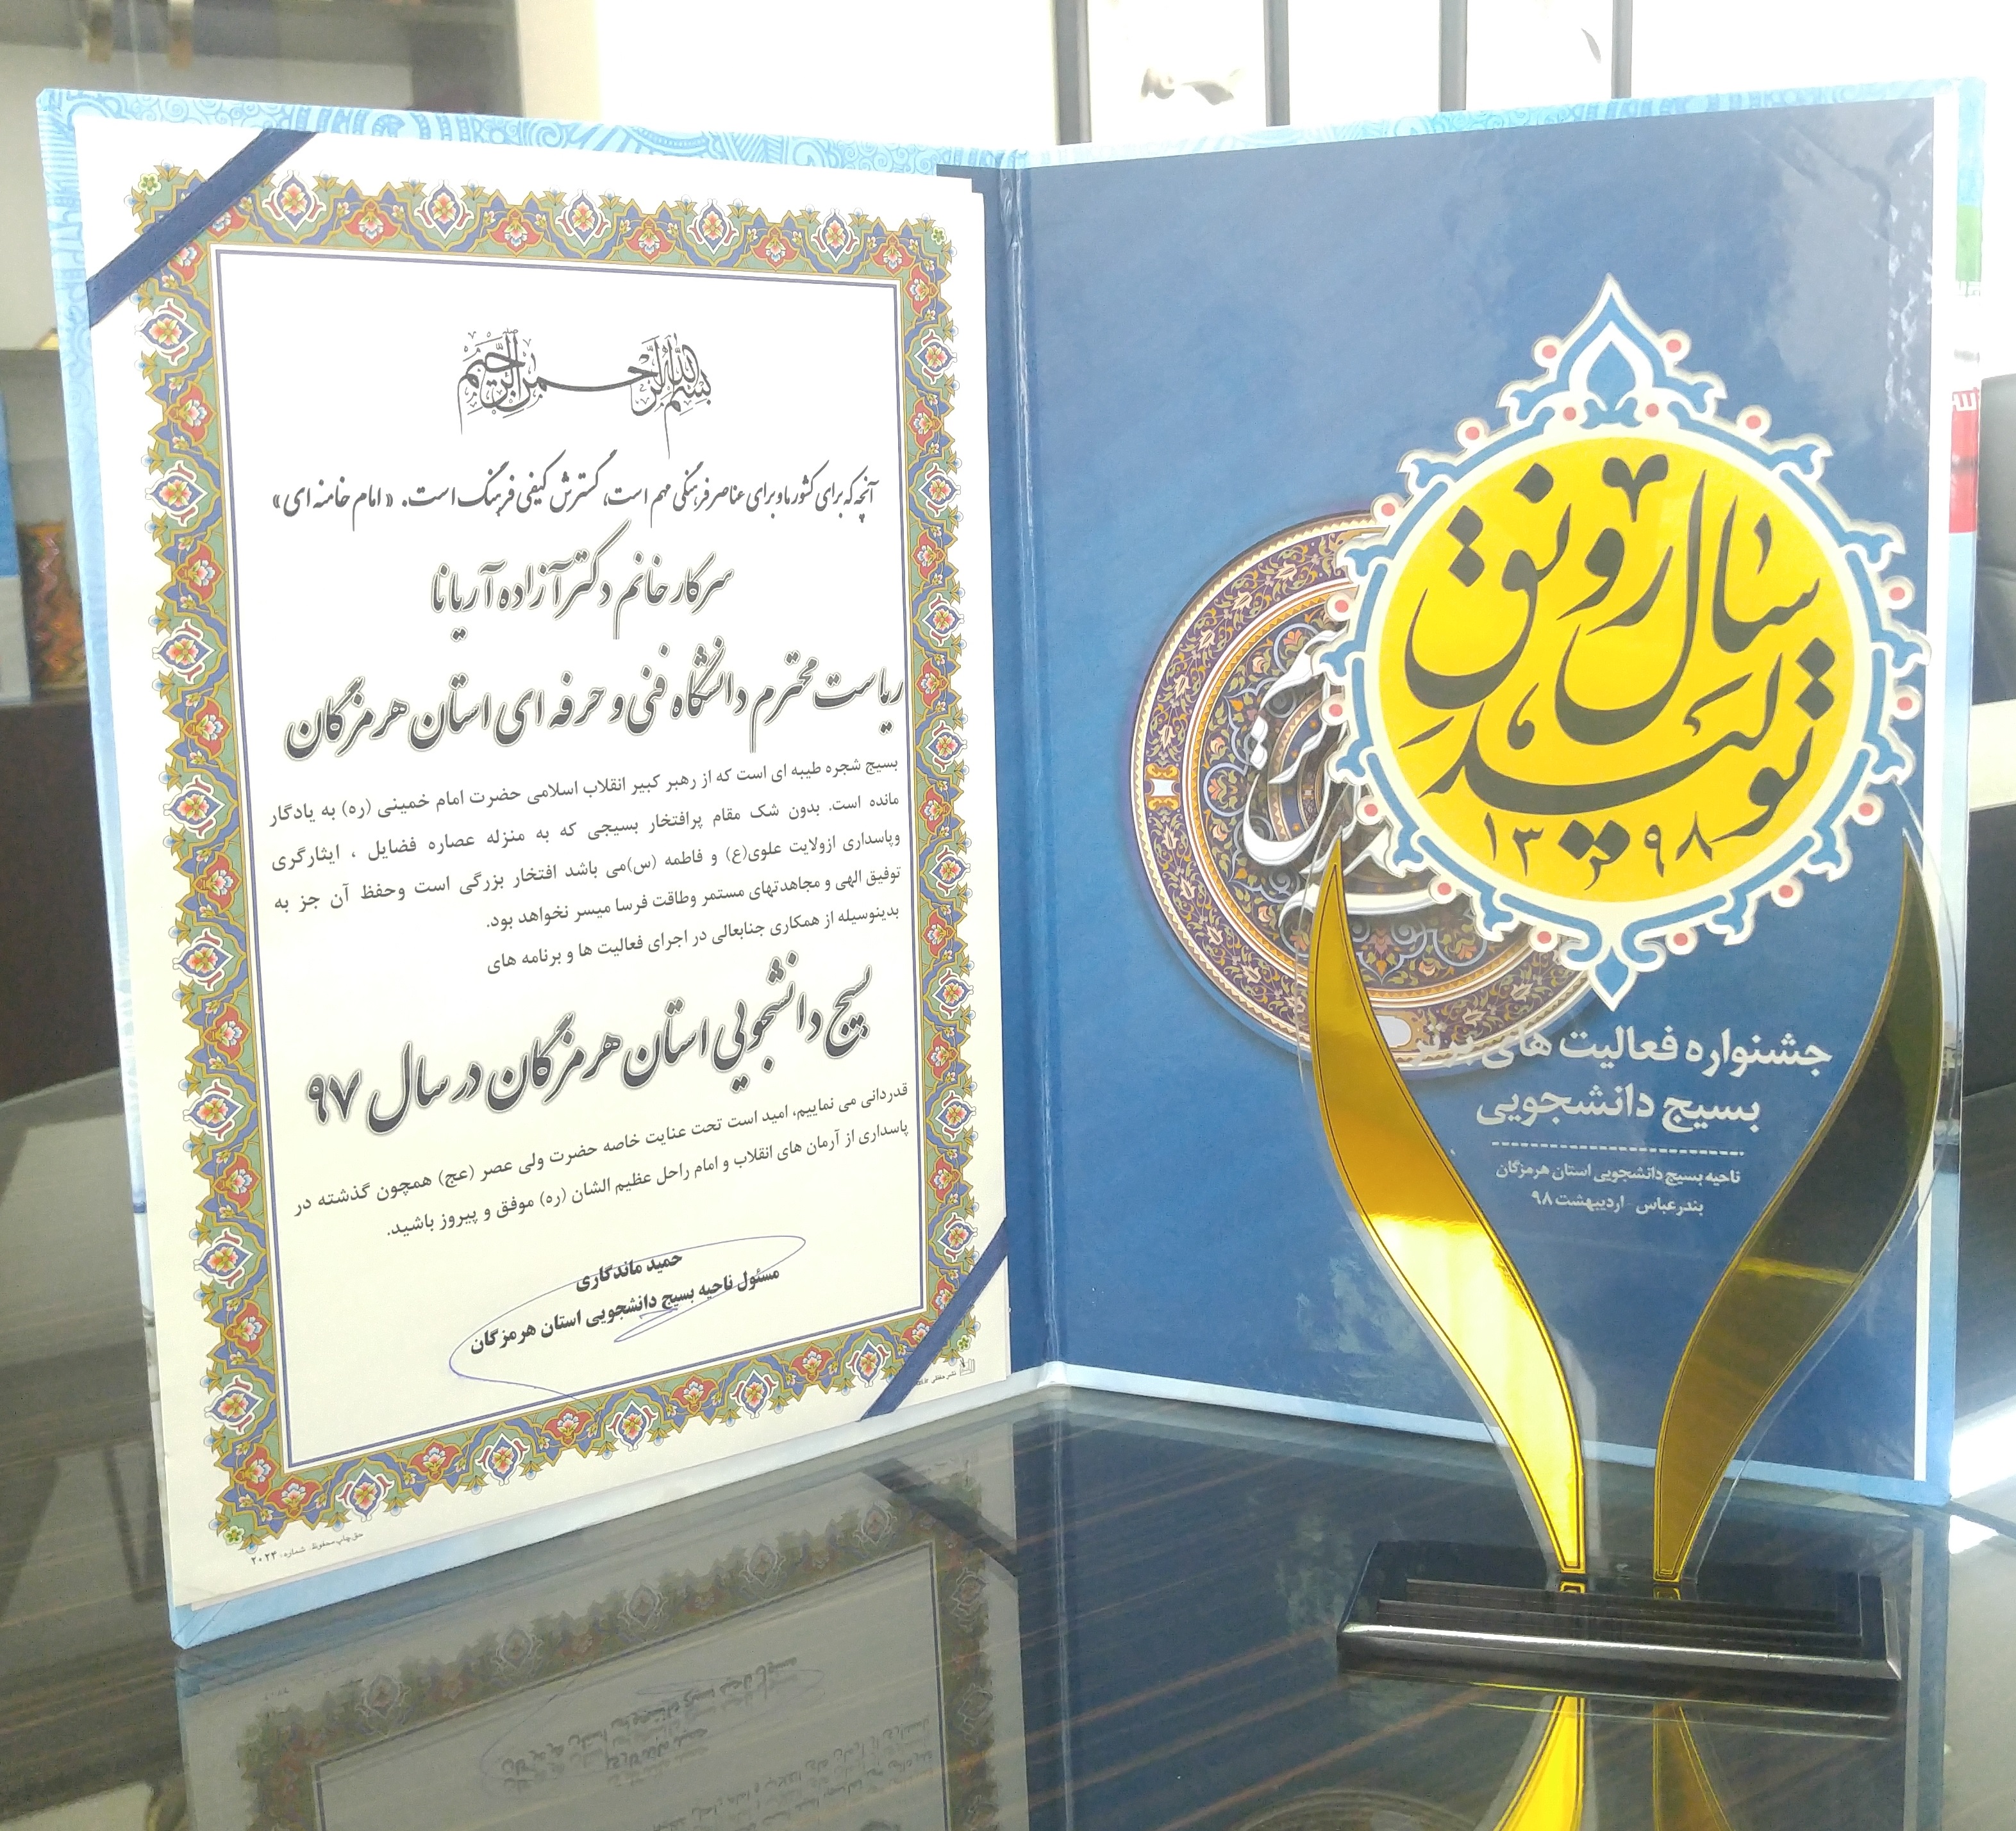 بسم الله الرحمن الرحیم
آنچه که برای کشور ما و برای عناصر فرهنگی مهم است، گسترش کیفی فرهنگ است. «امام خامنه ای»
سرکار خانم دکتر آزاده آریانا
ریاست محترم دانشگاه فنی و حرفه ای استان هرمزگان
بسیج شجره طیبه ای است که از رهبر کبیر انقلاب اسلامی حضرت امام خمینی (ره) به یادگار
مانده است. بدون شک مقام پرافتخار بسیجی که به منزله عصاره فضایل ، ایثارگری
وپاسداری ازولایت علوی(ع) و فاطمه (س)می باشد افتخار بزرگی است وحفظ آن جز به
توفیق الهی و مجاهدتهای مستمر وطاقت فرسا میسر نخواهد بود.
بدینوسیله از همکاری جنابعالی در اجرای فعالیت ها و برنامه های
بسیج دانشجویی استان هرمزگان در سال ۹۷
قدردانی می نماییم، امید است تحت عنایت خاصه حضرت ولی عصر (عج) همچون گذشته در
پاسداری از آرمان های انقلاب و امام راحل عظیم الشان (ره) موفق و پیروز باشید.
حمید ماندگاری
مسئول ناحیه بسیج دانشجویی استان هرمزگان
حق چاپ محفوظ. شماره: ۲۰۲۳
سال رونق
تولید
۱۳۹۸
جشنواره فعالیت های برتر
بسیج دانشجویی
ناحیه بسیج دانشجویی استان هرمزگان
بندرعباس - اردیبهشت ۹۸